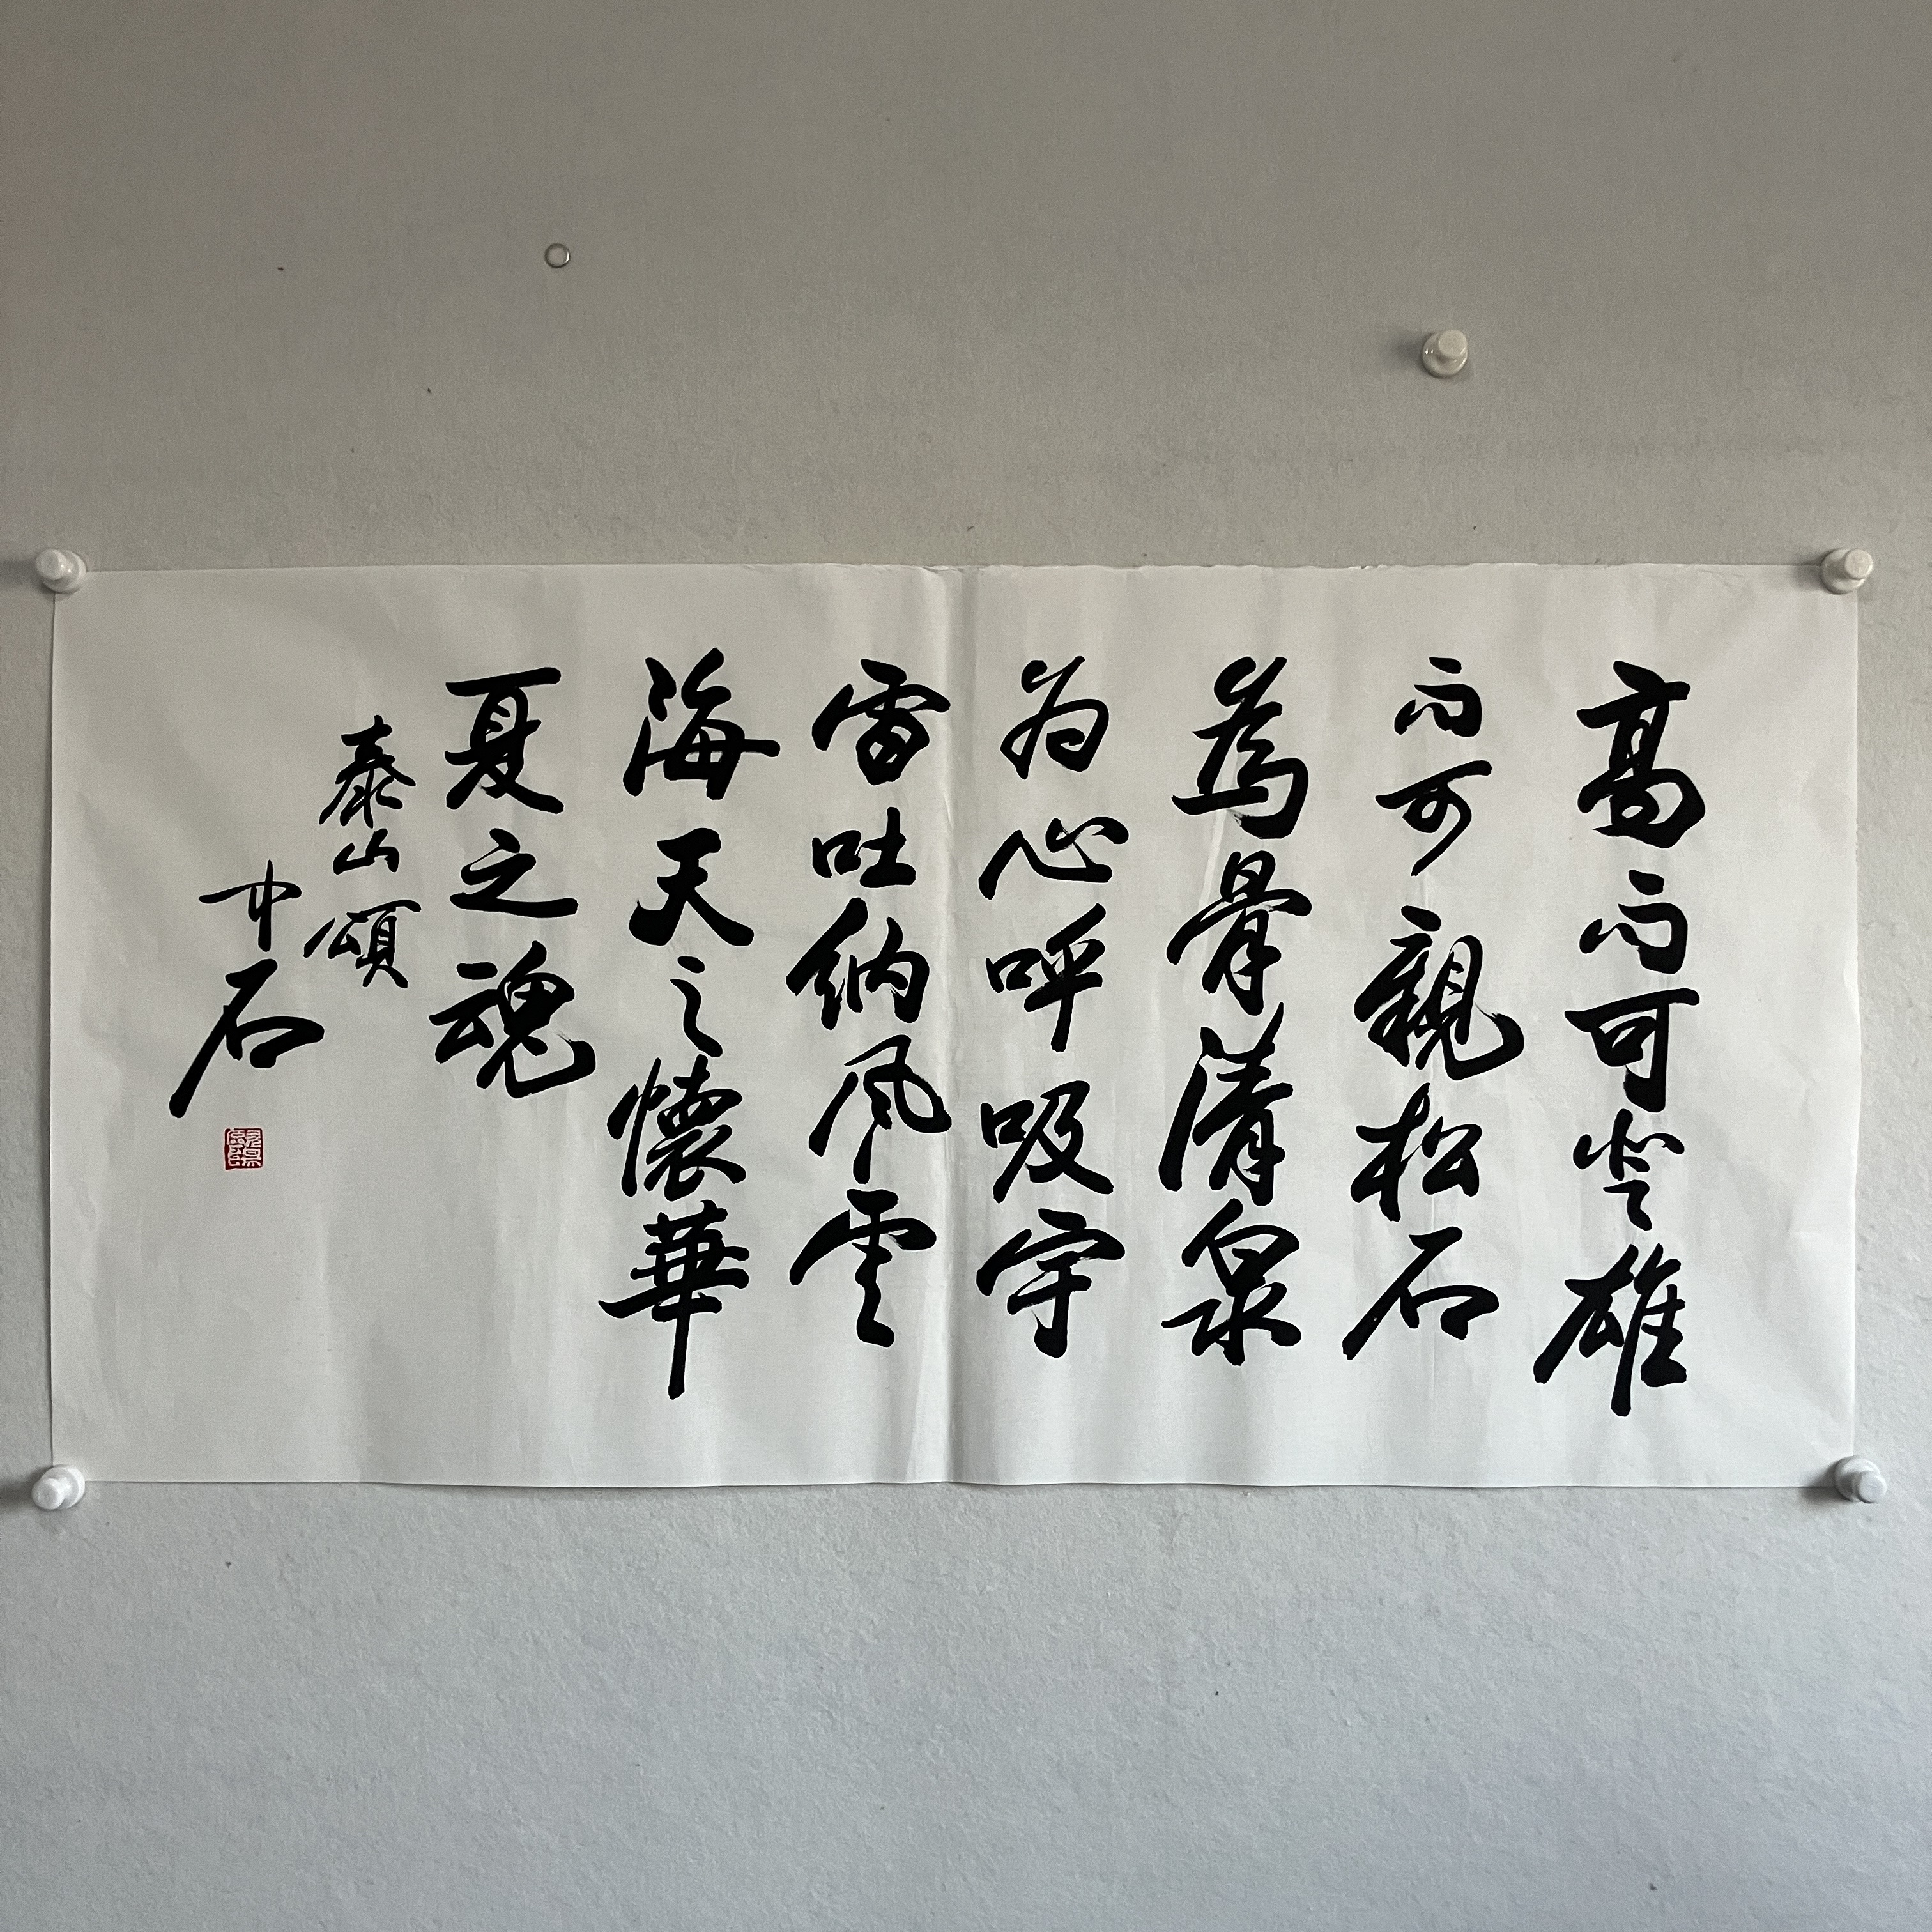 高而可登雄
而可親松石
為骨清泉
为心呼吸宇
宙吐納风雲
海天之懷華
夏之魂
泰山頌
中石